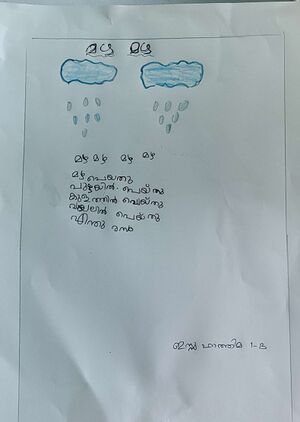 മഴ മഴ
മഴ മഴ മഴ മഴ
മഴ പെയ്തു
പുഴയിൽ പെയ്തു
കുളത്തിൽ പെയ്തു
വയലിൽ പെയ്തു
എന്തു രസം
ഇസ്സ ഫാത്തിമ 1-B